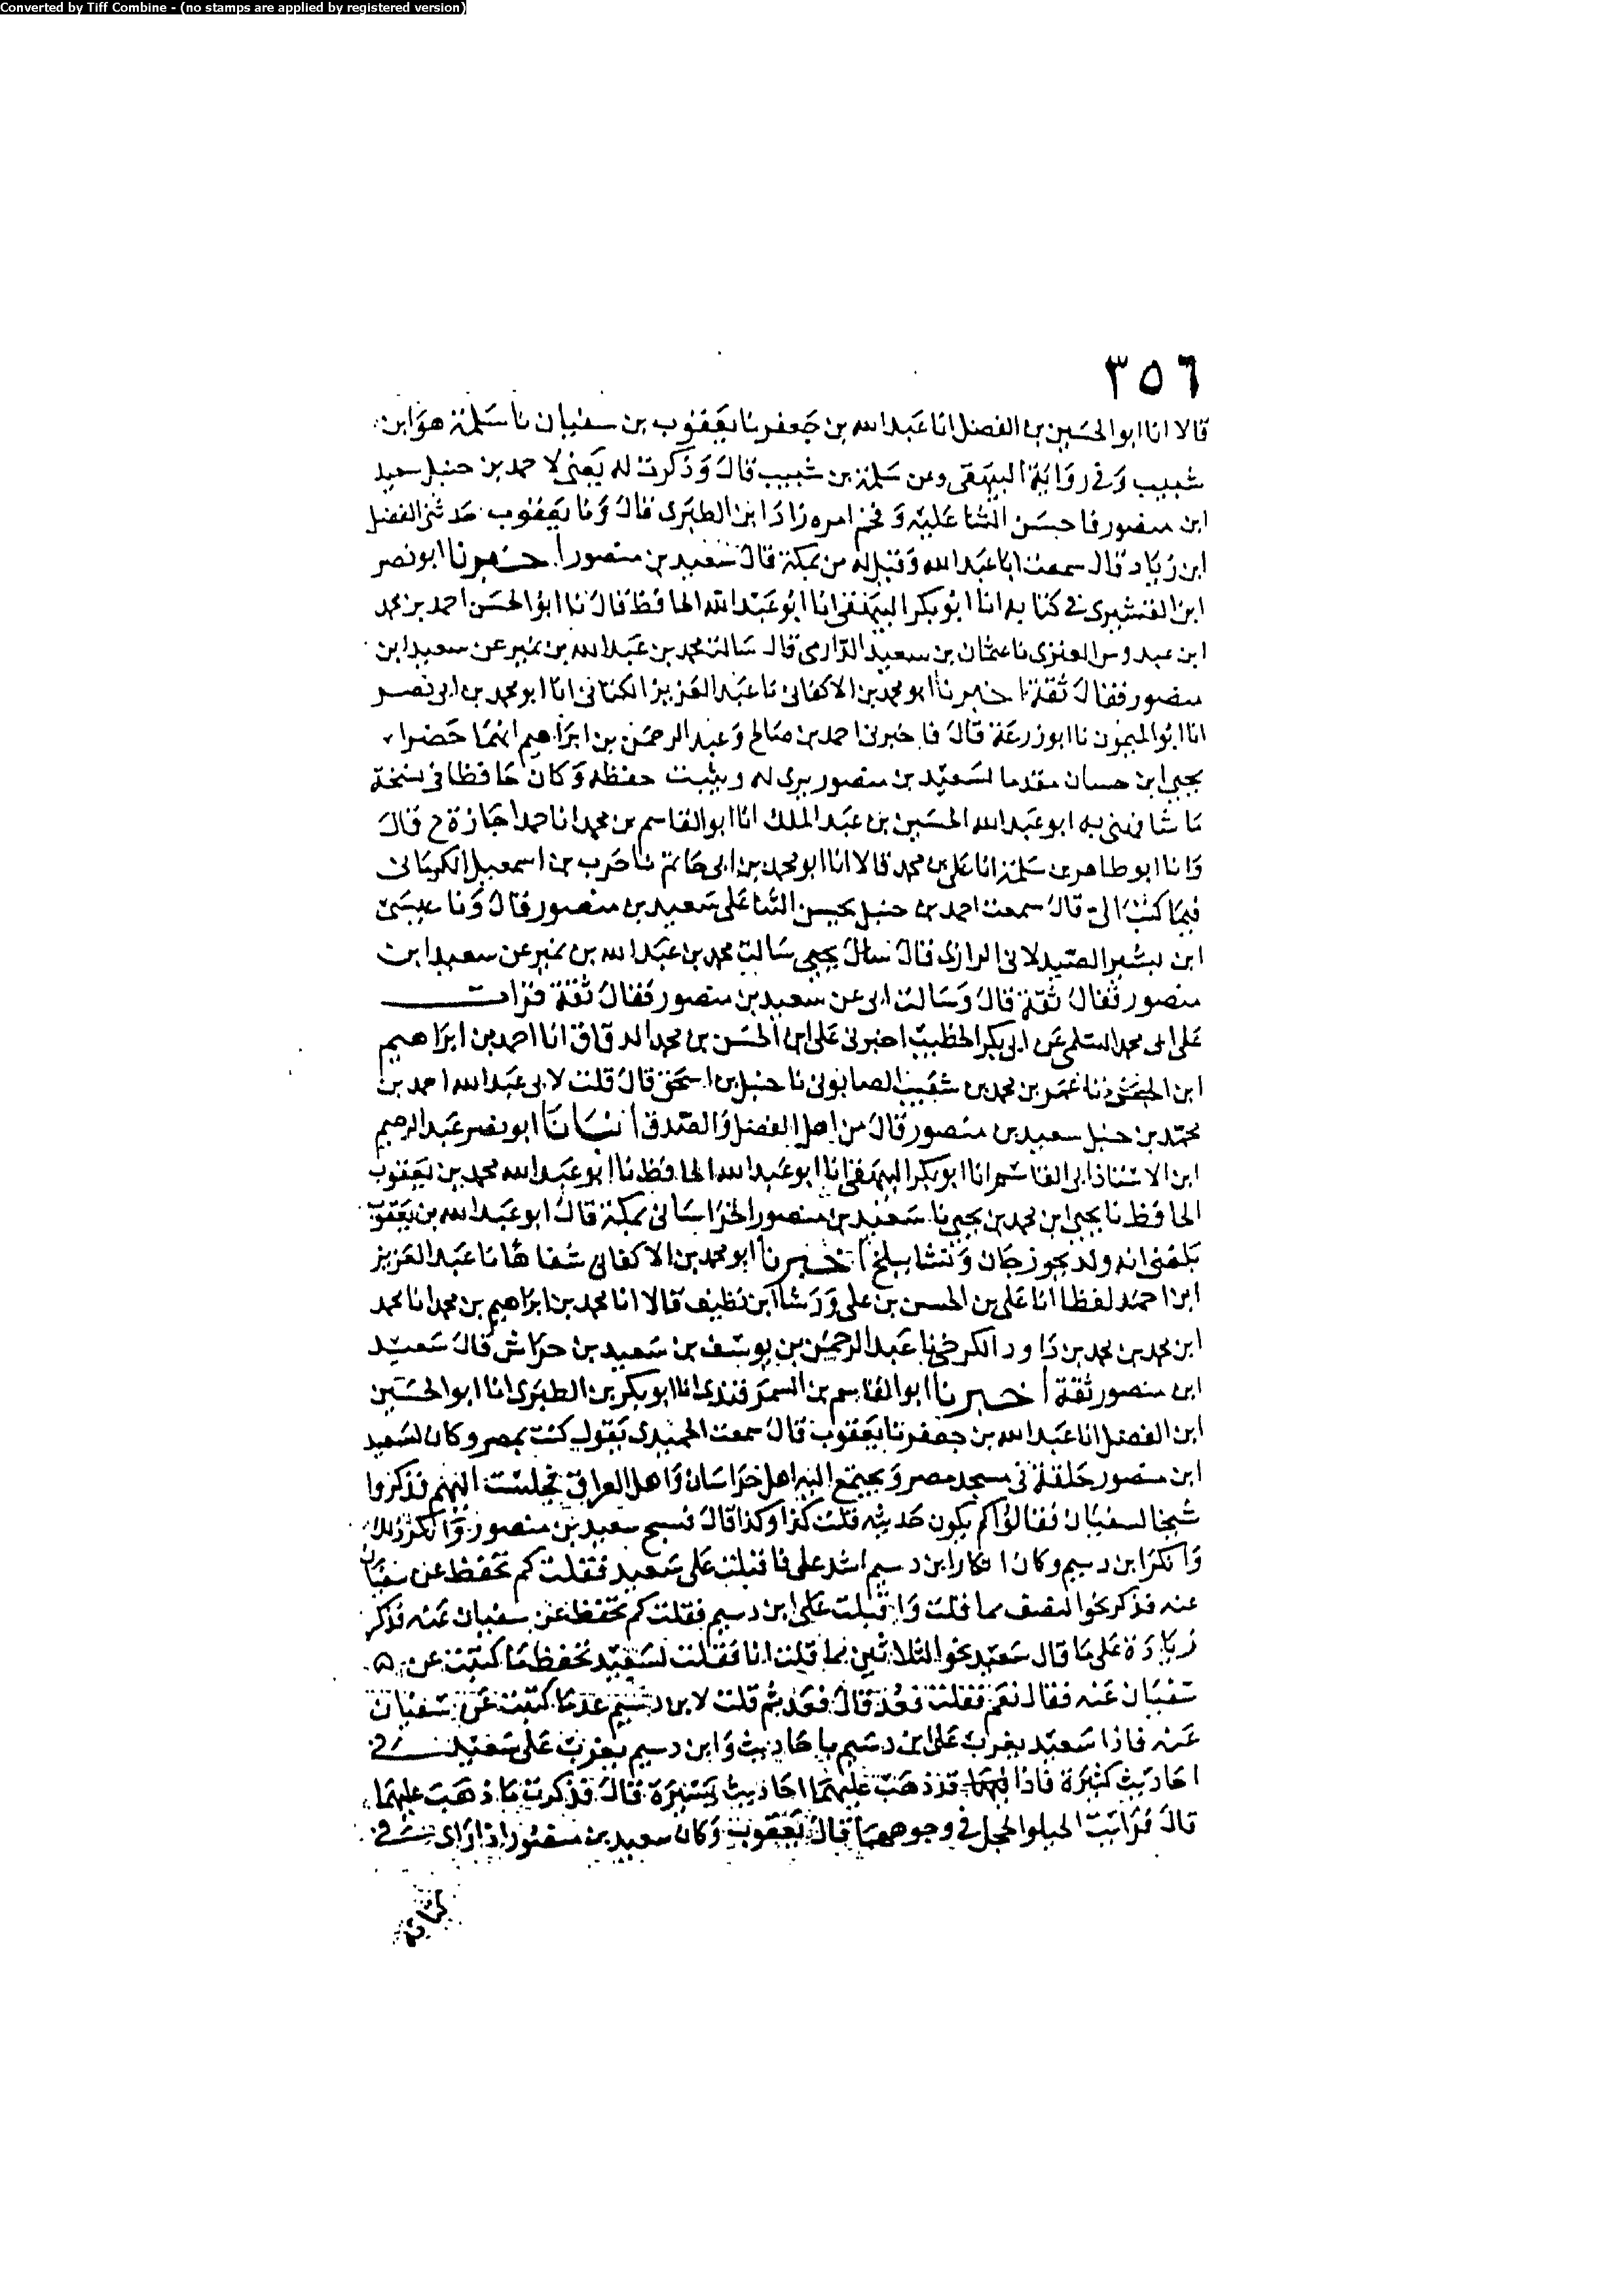 Converted by Tiff Combine - (no stamps are applied by registered version)
٣٥٦
قالا انا ابو الحسين بن الفضل انا عبد الله بن جعفر نا يعقوب بن سفيان نا سلمة هو ابن
شبيب وفي رواية البيهقي وعن سلمة بن شبيب قال وذكرت له يعني لاحمد بن حنبل سعيد
ابن منصور فاحسن الثنا عليه وفخم امره زاد ابن الطبري قال ونا يعقوب حدثني الفضل
ابن زياد قال سمعت ابا عبد الله وقيل له من بمكة قال سعيد بن منصور اخبرنا ابو نصر
ابن القشيري في كتابه انا ابو بكر البيهقي انا ابو عبد الله الحافظ قال نا ابو الحسن احمد بن محمد
ابن عبدوس العنزي نا عثمان بن سعيد الدارمي قال سالت محمد بن عبد الله بن نمير عن سعيد ابن
منصور فقال ثقة اخبرنا ابو محمد بن الاكفاني نا عبد العزيز الكتاني انا ابو محمد بن ابي نصر
انا ابو الميمون نا ابو زرعة قال فاخبرني احمد بن صالح وعبد الرحمن بن ابراهيم انهما حضرا
يحيى ابن حسان مقدما لسعيد بن منصور يرى له ويثبت حفظه وكان حافظا في نسخة
ما شافهني به ابو عبد الله الحسين بن عبد الملك انا ابو القاسم بن محمد انا حمد اجازة ح قال
وانا ابو طاهر بن سلمة انا علي بن محمد قالا انا ابو محمد بن ابي حاتم نا حرب بن اسمعيل الكرماني
فيما كتب الي قال سمعت احمد بن حنبل يحسن الثنا على سعيد بن منصور قال ونا عيسى
ابن بشير الصيدلاني الرازي قال سال يحيى سالت محمد بن عبد الله بن نمير عن سعيد ابن
منصور فقال ثقة قال وسالت ابي عن سعيد بن منصور فقال ثقة قرات
على ابي محمد السلمي عن ابي بكر الخطيب اخبرني علي ابن الحسن بن محمد الدقاق انا احمد بن ابراهيم
ابن نا عمر بن محمد بن شعيب الصابوني نا حنبل بن اسحق قال قلت لابي عبد الله احمد بن
محمد بن حنبل سعيد بن منصور قال من اهل الفضل والصدق انبانا ابو نصر عبد الرحيم
ابن الاستاذ ابي القاسم انا ابو بكر البيهقي انا ابو عبد الله الحافظ نا ابو عبد الله محمد بن يعقوب
الحافظ نا يحيى ابن محمد بن يحيى نا سعيد بن منصور الخراساني بمكة قال ابو عبد الله بن يعقوب
بلغني انه ولد بجوزجان ونشا ببلخ اخبرنا ابو محمد بن الاكفاني شفاها نا عبد العزيز
ابن احمد لفظا انا علي بن الحسن بن علي ورشا ابن نظيف قالا انا محمد بن ابراهيم بن محمد انا محمد
ابن محمد بن محمد بن داود الكرخي نا عبد الرحمن بن يوسف بن سعيد بن خراش قال سعيد
ابن منصور ثقة اخبرنا ابو القاسم بن السمرقندي انا ابو بكر بن الطبري انا ابو الحسين
ابن الفضل انا عبد الله بن جعفر نا يعقوب قال سمعت الحميدي يقول كنت بمصر وكان لسعيد
ابن منصور حلقة في مسجد مصر ويجتمع اليه اهل خراسان واهل العراق فجلست اليهم فذكروا
شيخا لسفيان فقالوا كم يكون حديثه قلت كذا وكذا قال فسبح سعيد بن منصور وانكر ذلك
وانكر ابن دسيم وكان انكار ابن دسيم اشد علي فاقبلت على سعيد فقلت كم تحفظ عن سفيان
عنه فذكر نحو النصف مما قلت واقبلت على ابن دسيم فقلت كم تحفظ عن سفيان عنه فذكر
زيادة على ما قال سعيد نحو الثلاثين مما قلت انا فقلت لسعيد تحفظ ما كتبت عن
سفيان عنه فقال نعم فقلت فعد قال فعد ثم قلت لابن دسيم عد ما كتبت عن سفيان
عنه فاذا سعيد يغرب على ابن دسيم باحاديث وابن دسيم يغرب على سعيد في
احاديث كثيرة فاذا قد ذهب عليهما احاديث يسيرة قال فذكرت ما ذهب عليهما
قال فرايت الحيا والخجل في وجوههما قال يعقوب وكان سعيد بن منصور اذا راى في